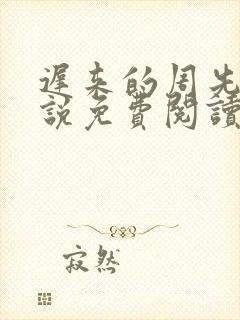 遲来的周先
說免費閱讀
寂然